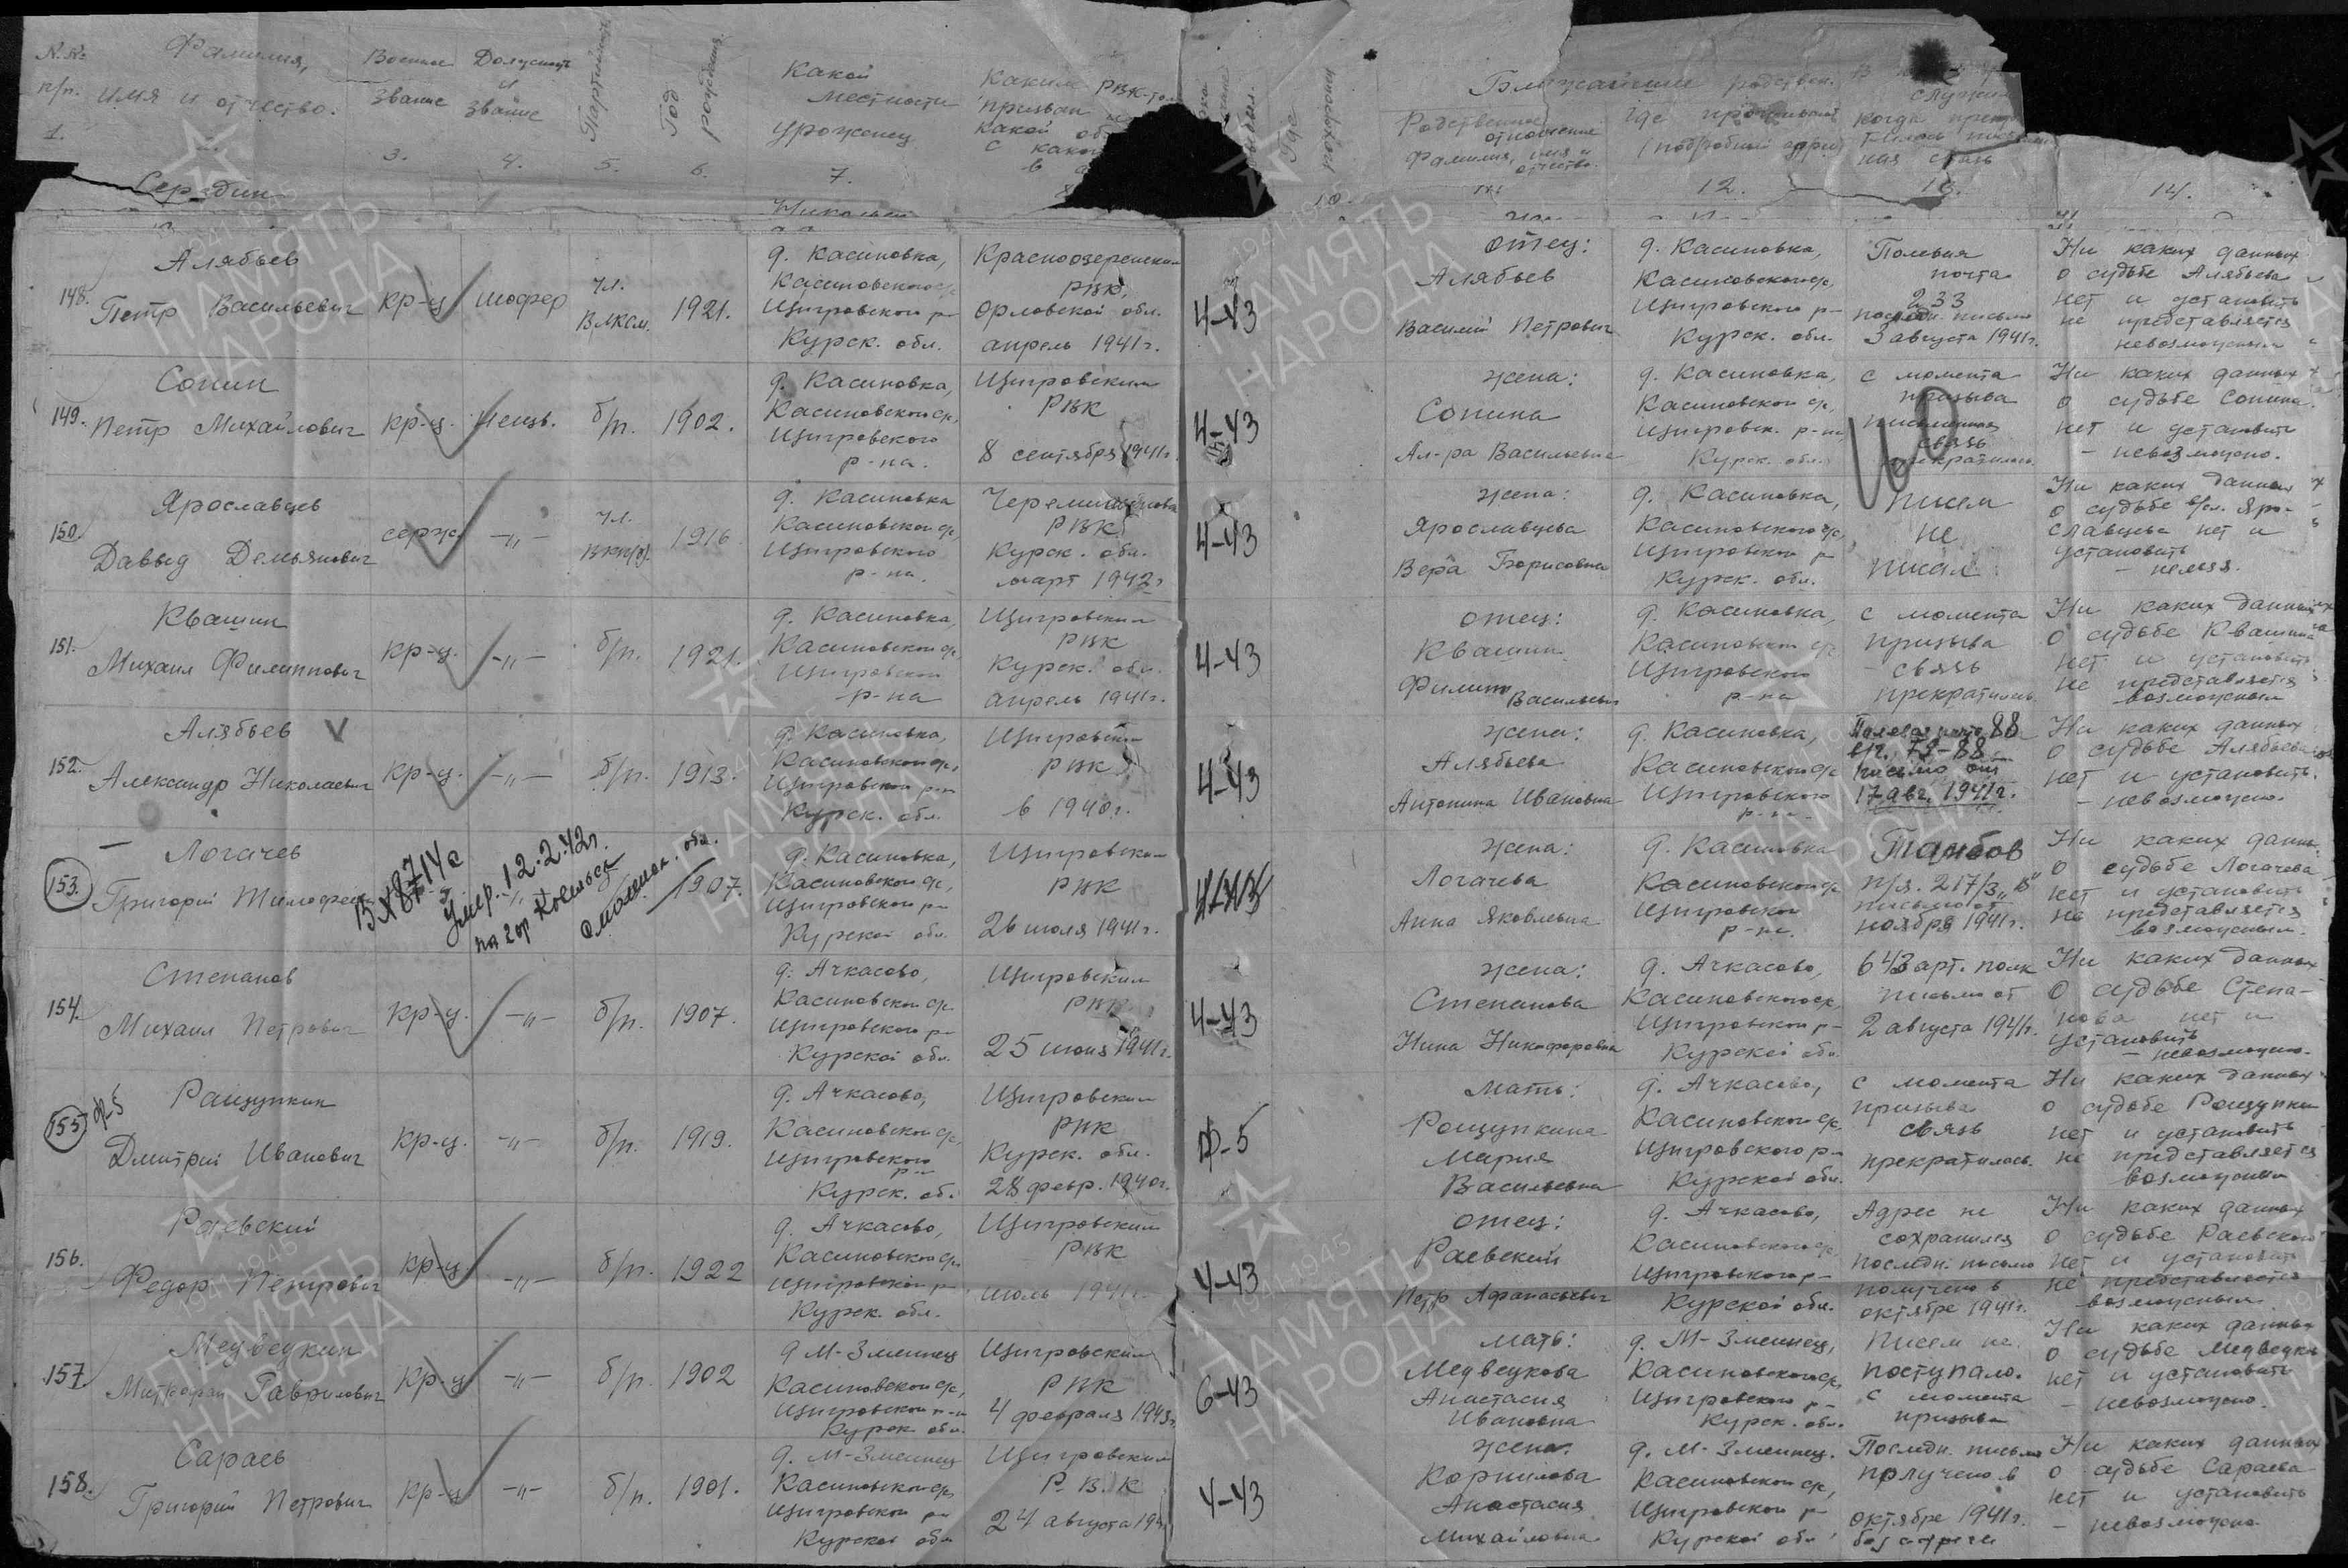 №№ п/п. 1.
Фамилия, имя и отчество.
Военное звание 3.
Должность и звание 4.
Партийность 5.
Год рождения 6.
Какой местности уроженец 7.
Каким РВК-то призван
какой об
с како
в
Где
10.
Ближайшие родствен.
Родственное отношение фамилия, имя и отчество.
где проживают (подробный адрес) 12.
служи
когда прек
ная связь 13.
14.
Середин
148. Алябьев Петр Васильевич
кр-ц
шофер
чл. ВЛКСМ.
1921.
д. Касиновка, Касиновского с/с, Щигровского р- Курск. обл.
Краснозеренским РВК, Орловской обл. апрель 1941г.
4-43
отец: Алябьев Василий Петрович
д. Касиновка, Касиновского с/с, Щигровского р- Курск. обл.
Полевая почта 233 последн. письмо 3 августа 1941г.
Ни каких данных о судьбе Алябьева нет и установить не представляется невозможным
149. Сонин Петр Михайлович
кр-ц.
б/п.
1902.
д. Касиновка, Касиновского с/с, Щигровского р-на.
Щигровским РВК 8 сентября 1941г.
4-43
жена: Сонина Ал-ра Васильевна
д. Касиновка, Касиновского с/с, Щигровск. р-на Курск. обл.
с момента призыва письменная связь прекратилась.
60
Ни каких данных о судьбе Сонина. нет и установить - невозможно.
150. Ярославцев Давыд Демьянович
серж.
-"-
чл. ВКП(б).
1916
д. Касиновка Касиновского с/с, Щигровского р-на.
РВК Курск. обл. март 1942г
4-43
жена: Ярославцева Вера Борисовна
д. Касиновка, Касиновского с/с, Щигровского р- Курск. обл.
Писем не писал
Ни каких данных о судьбе Яро-славцева нет и установить - нельзя.
151. Квашин Михаил Филиппович
кр-ц.
-"-
б/п.
1921.
д. Касиновка, Касиновского с/с, Щигровского р-на
Щигровским РВК Курск. обл. апрель 1941г.
4-43
отец: Квашин Филипп Васильевич
д. Касиновка, Касиновского с/с Щигровского р-на
с момента призыва связь прекратилась
Ни каких данных о судьбе Квашина нет и установить не представляется возможным
152. Алябьев Александр Николаевич
V
кр-ц.
-"-
б/п.
1913.
д. Касиновка, Касиновского с/с, Щигровского р-н Курск. обл.
Щигровским РВК в 1940г.
4-43
жена: Алябьева Антонина Ивановна
д. Касиновка, Касиновского с/с Щигровского р-на
Полевая почта 88 в/ч. 78-88 письмо от 17 авг. 1941г.
Ни каких данных о судьбе Алябьева нет и установить. - невозможно.
153. Логачев Григорий Тимофеевич
Вх 8714с
умер. 12.2.42г. на гор Козельск Смоленск. обл.
1907.
д. Касиновка, Касиновского с/с, Щигровского р- Курской обл.
Щигровским РВК 26 июля 1941г.
4-43
жена: Логачева Анна Яковлевна
д. Касиновка Касиновского с/с Щигровского р-на.
Тамбов п/я. 217/3 "В" письмо от ноября 1941г.
Ни каких данных о судьбе Логачева нет и установить не представляется возможным.
154. Степанов Михаил Петрович
кр-ц.
-"-
б/п.
1907.
д. Ачкасово, Касиновского с/с Щигровского р- Курской обл.
Щигровским РВК 25 июня 1941г.
4-43
жена: Степанова Нина Никифоровна
д. Ачкасово, Касиновского с/с, Щигровского р- Курской обл
643 арт. полк письмо от 2 августа 1941г.
Ни каких данных о судьбе Степа-нова нет и установить - невозможно.
155 ф-5 Ращупкин Дмитрий Иванович
кр-ц.
-"-
б/п.
1919.
д. Ачкасово, Касиновского с/с, Щигровского р- Курск. об.
Щигровским РВК Курск. обл. 28 февр. 1940г.
ф-5
мать: Рощупкина Мария Васильевна
д. Ачкасово, Касиновского с/с, Щигровского р- Курской обл.
с момента призыва связь прекратилась.
Ни каких данных о судьбе Рощупки нет и установить не представляется возможным
156. Раевский Федор Петрович
кр-ц
-"-
б/п.
1922
д. Ачкасово, Касиновского с/с Щигровского р- Курск. обл.
Щигровским РВК июль 1941г.
4-43
отец: Раевский Петр Афанасьевич
д. Ачкасово, Касиновского с/с, Щигровского р- Курской обл.
Адрес не сохранился последн. письмо получено в октябре 1941г.
Ни каких данных о судьбе Раевского нет и установить не представляется возможным
157 Медведкин Митрофан Гаврилович
кр-ц
-"-
б/п.
1902
д М-Змеинец Касиновского с/с, Щигровского р-н Курск обл.
Щигровским РВК 4 февраля 1943г
6-43
мать: Медведкова Анастасия Ивановна
д. М-Змеинец, Касиновского с/с, Щигровского р- Курск. обл.
Писем не поступало. с момента призыва
Ни каких данных о судьбе Медведки нет и установить - невозможно.
158. Сараев Григорий Петрович
кр-ц
-"-
б/п.
1901.
д. М-Змеинец Касиновского с/с, Щигровского р- Курской обл
Щигровским Р.В.К 24 августа 194
4-43
жена: Корнилова Анастасия Михайловна
д. М-Змеинец. Касиновского с/с, Щигровского р- Курской обл
Последн. письмо получено в октябре 1941г. без адреса
Ни каких данных о судьбе Сараева нет и установить - невозможно
ПАМЯТЬ НАРОДА
1941-1945